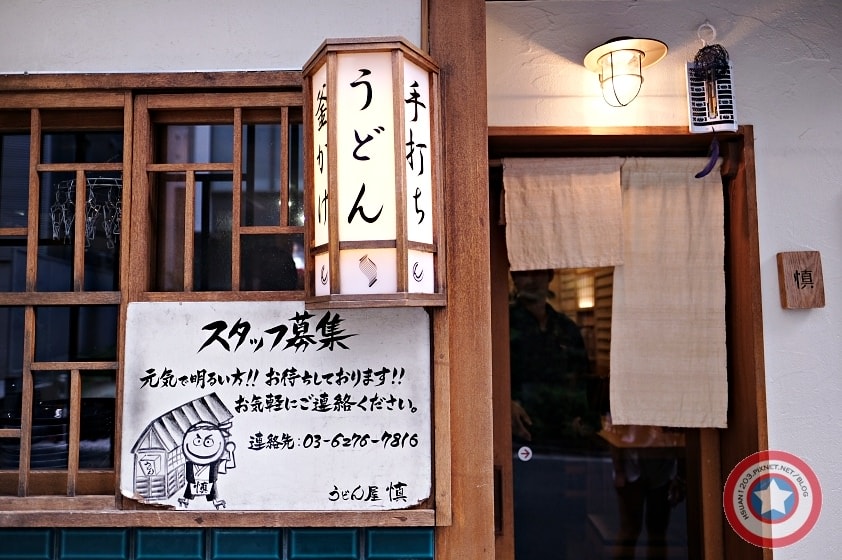 手打ち
うどん
釜かけ
スタッフ募集
元気で明るい方!! お待ちしております!!
お気軽にご連絡ください。
連絡先:03-6276-7816
うどん屋 慎
慎
慎
HSUAN1203.PIXNET.NET/BLOG